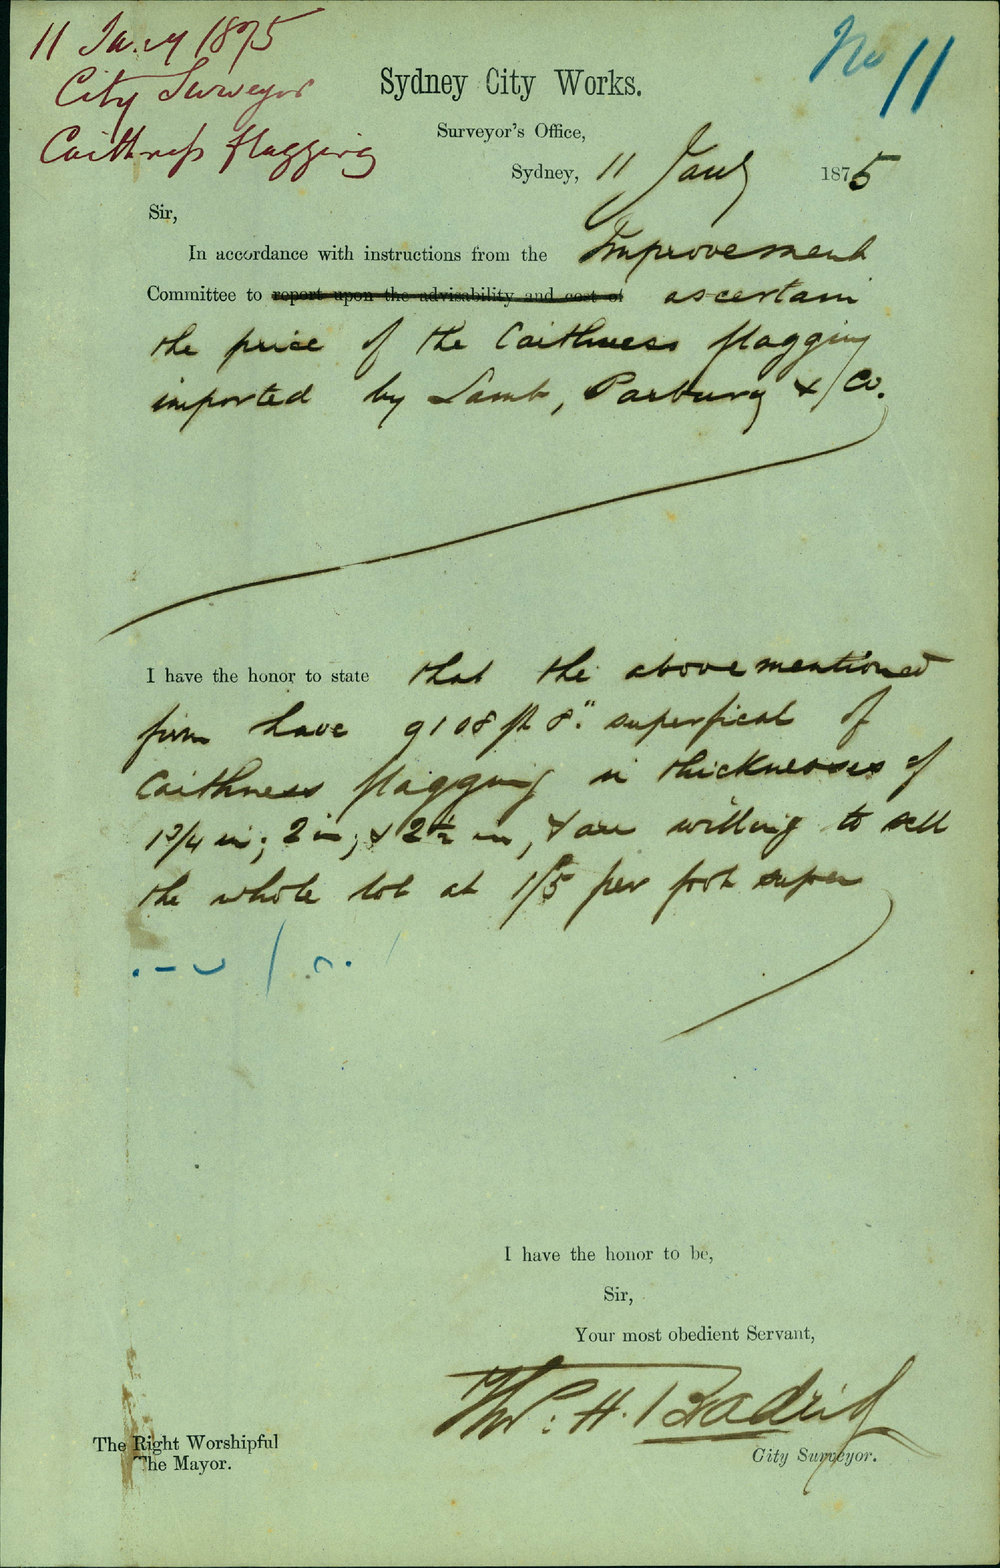 11 Jany 1875
City Surveyor
Caithness flagging
No 11
Sydney City Works.
Surveyor's Office,
Sydney, 11 Jany 1875
Sir,
In accordance with instructions from the Improvement
Committee to report upon the advisability and cost of ascertain
the price of the Caithness flagging
imported by Lamb, Parbury & Co.
I have the honor to state that the above mentioned
firm have 9108 ft 8." superficial of
Caithness flagging in thicknesses of
1 3/4 in; 2 in; & 2 1/2 in, & are willing to sell
the whole lot at 1/5 per foot super
I have the honor to be,
Sir,
Your most obedient Servant,
Thos. H. Bradridge
City Surveyor.
The Right Worshipful
The Mayor.